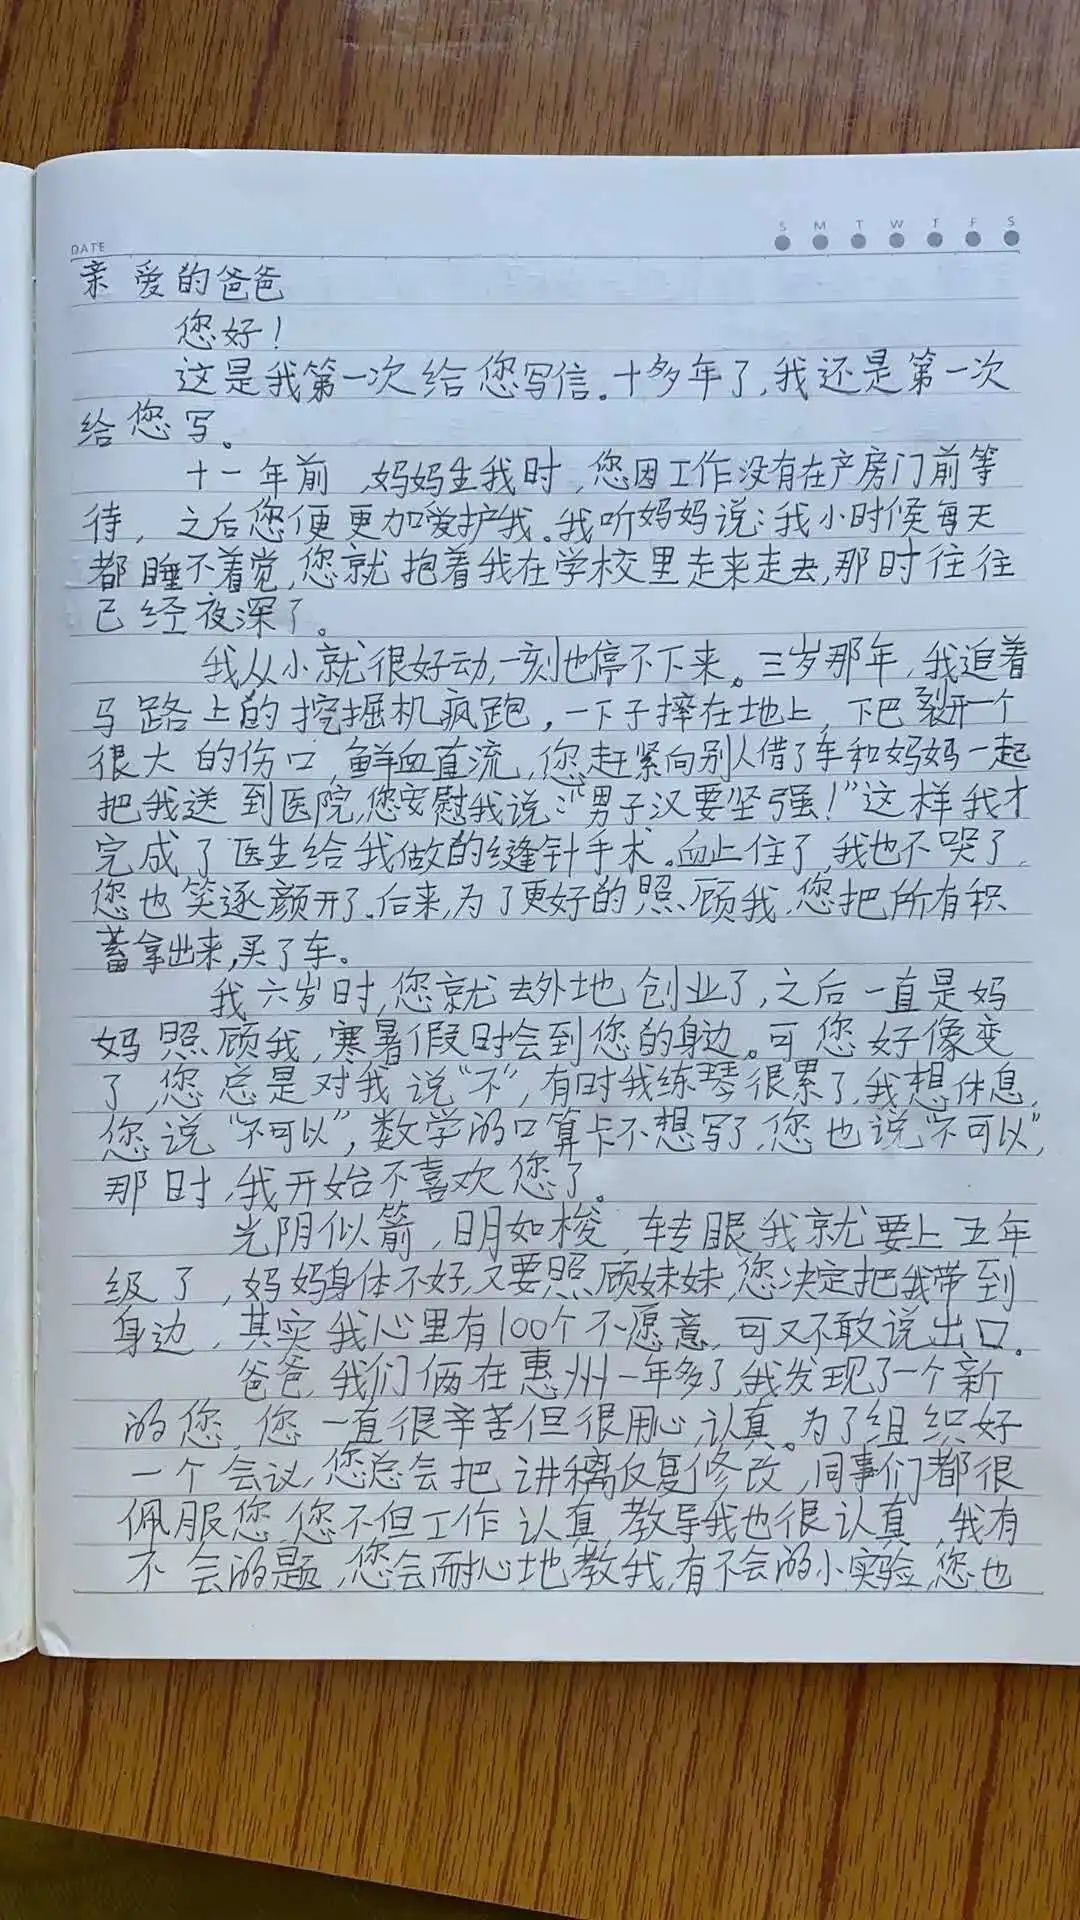 DATE
S M T W T F S
亲爱的爸爸
您好！
这是我第一次给您写信。十多年了，我还是第一次
给您写。
十一年前，妈妈生我时，您因工作没有在产房门前等
待，之后您便更加爱护我。我听妈妈说：我小时候每天
都睡不着觉，您就抱着我在学校里走来走去，那时往往
已经夜深了。
我从小就很好动，一刻也停不下来。三岁那年，我追着
马路上的挖掘机疯跑，一下子摔在地上，下巴裂开一个
很大的伤口，鲜血直流，您赶紧向别人借了车和妈妈一起
把我送到医院，您安慰我说：“男子汉要坚强！”这样我才
完成了医生给我做的缝针手术。血止住了，我也不哭了，
您也笑逐颜开了。后来，为了更好的照顾我，您把所有积
蓄拿出来，买了车。
我六岁时，您就去外地创业了，之后一直是妈
妈照顾我，寒暑假时会到您的身边。可您好像变
了，您总是对我说“不”，有时我练琴很累了，我想休息，
您说“不可以”，数学的口算卡不想写了，您也说，“不可以”，
那时，我开始不喜欢您了。
光阴似箭，日月如梭，转眼我就要上五年
级了，妈妈身体不好，又要照顾妹妹，您决定把我带到
身边，其实我心里有100个不愿意，可又不敢说出口。
爸爸，我们俩在惠州一年多了，我发现了一个新
的您，您一直很辛苦但很用心，认真。为了组织好
一个会议，您总会把讲稿反复修改，同事们都很
佩服您，您不但工作认真，教导我也很认真，我有
不会的题，您会耐心地教我，有不会的小实验，您也